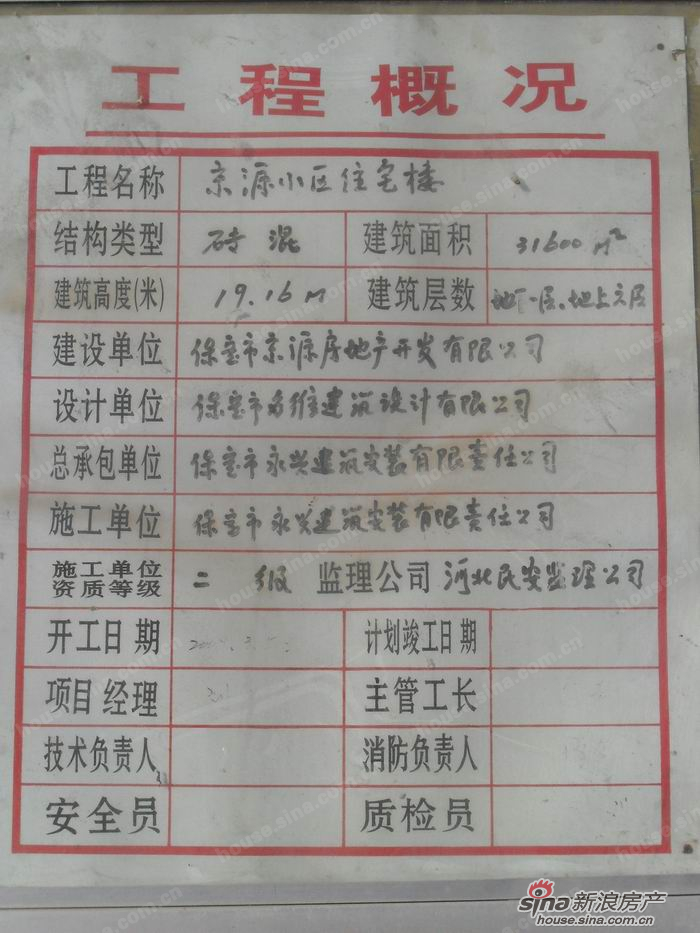 工程概况
工程名称 京源小区住宅楼
结构类型 砖混 建筑面积 31600 M²
建筑高度(米) 19.16M 建筑层数 地下一层、地上六层
建设单位 保定市京源房地产开发有限公司
设计单位 保定市多维建筑设计有限公司
总承包单位 保定市永兴建筑安装有限责任公司
施工单位 保定市永兴建筑安装有限责任公司
施工单位资质等级 二级 监理公司 河北民安监理公司
开工日期 计划竣工日期
项目经理 主管工长
技术负责人 消防负责人
安全员 质检员
sina新浪房产
house.sina.com.cn